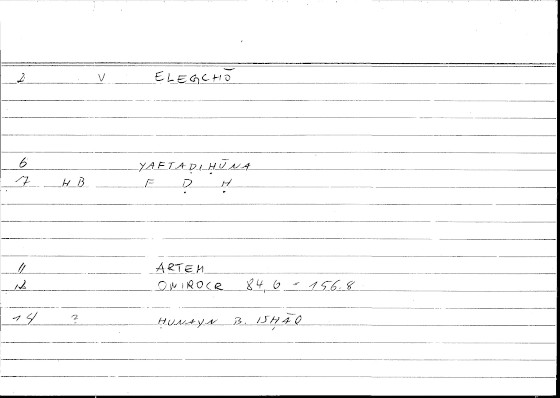 2 V ELEGCHŌ
6 YAFTAḌIḤŪNA
7 HB F Ḍ Ḥ
11 ARTEM
12 ONIROCR 84,6 - 156.8
14 ? ḤUNAYN B. ISḤĀQ